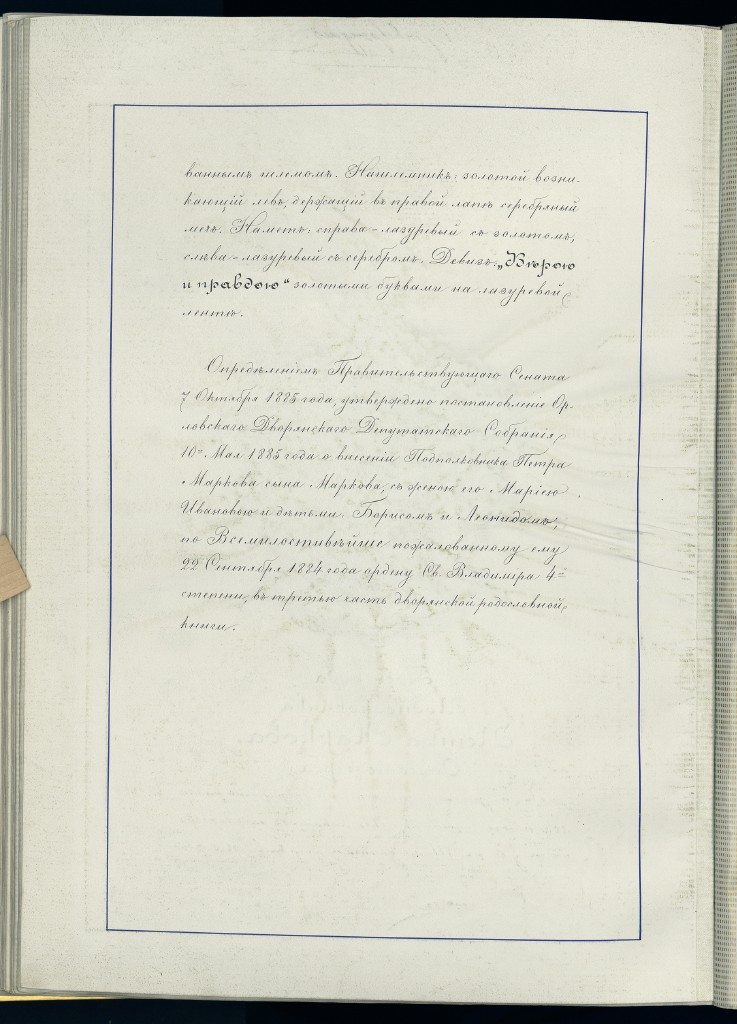 ваннымъ шлемомъ. Нашлемникъ: золотой возни-
кающій левъ, держащій въ правой лапѣ серебряный
мечъ. Наметъ: справа - лазуревый съ золотомъ,
слѣва - лазуревый съ серебромъ. Девизъ: „Вѣрою
и правдою“ золотыми буквами на лазуревой
лентѣ.
Опредѣленіемъ Правительствующаго Сената
7 Октября 1885 года, утверждено постановленіе Ор-
ловскаго Дворянскаго Депутатскаго Собранія,
10го Мая 1885 года о внесеніи Подполковника Петра
Маркова сына Маркова, съ женою его Маріею
Ивановою и дѣтьми: Борисомъ и Леонидомъ,
по Всемилостивѣйше пожалованному ему
22 Сентября 1884 года ордену Св. Владиміра 4й
степени, въ третью часть дворянской родословной
книги.